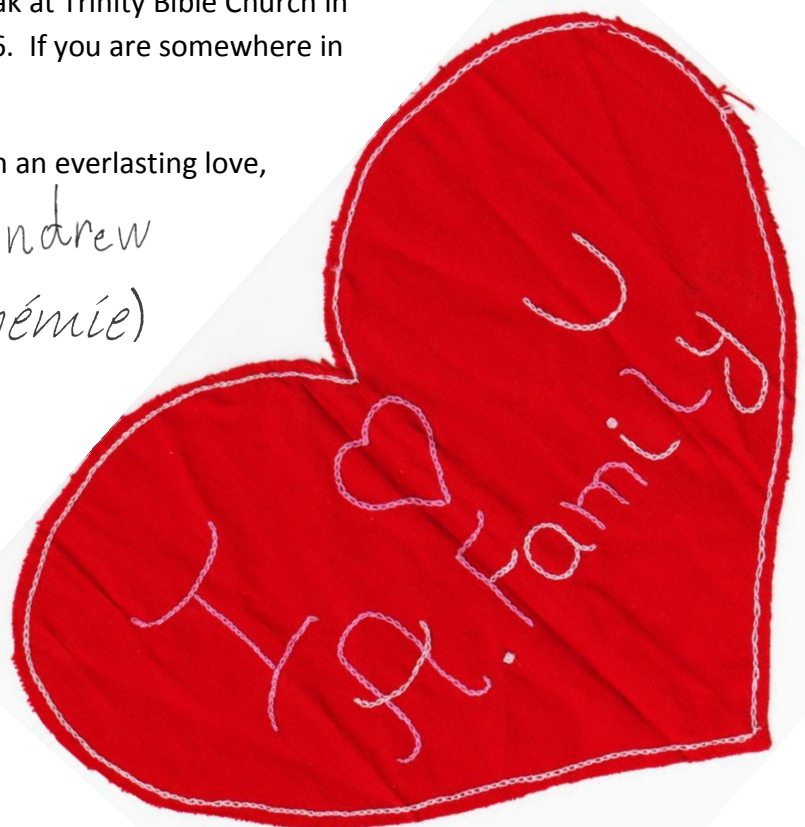 ak at Trinity Bible Church in
6. If you are somewhere in
n an everlasting love,
ndrew
émie)
I ♡ U
A. Family